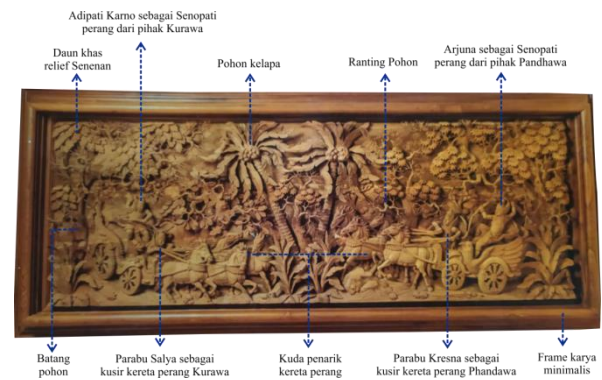 Adipati Karno sebagai Senopati
perang dari pihak Kurawa
Daun khas
relief Senenan
Pohon kelapa
Ranting Pohon
Arjuna sebagai Senopati
perang dari pihak Pandhawa
Batang
pohon
Parabu Salya sebagai
kusir kereta perang Kurawa
Kuda penarik
kereta perang
Parabu Kresna sebagai
kusir kereta perang Phandawa
Frame karya
minimalis